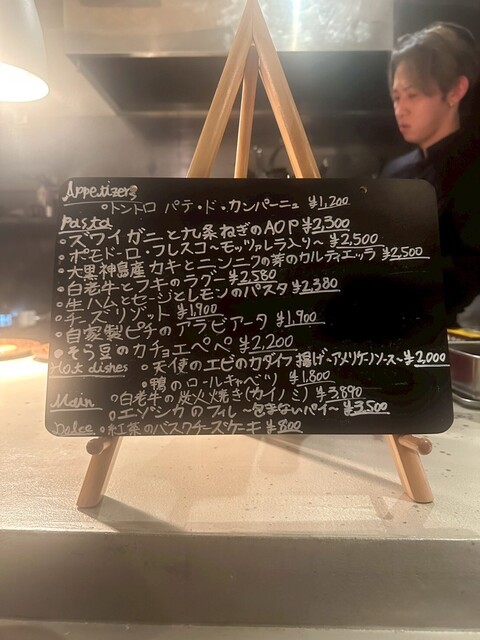 Appetizer
◦トントロ パテ・ド・カンパーニュ ¥1,200
Pasta
◦ズワイガニと九条ねぎのAOP ¥2,300
◦ポモドーロ・フレスコ~モッツァレラ入り~ ¥2,500
◦大黒神島産カキとニンニクの芽のカルティエッラ ¥2,500
◦白老牛とフキのラグー ¥2580
◦生ハムとセージとレモンのパスタ ¥2380
◦チーズリゾット ¥1,900
◦自家製ピチのアラビアータ ¥1,900
◦そら豆のカチョエペペ ¥2,200
Hot dishes ◦天使のエビのカダイフ揚げ~アメリケーノソース~ ¥2,000
◦鴨のロールキャベツ ¥1,800
Main ◦白老牛の炭火焼き(カイノミ) ¥3,890
◦エゾシカのフィレ ~包まないパイ~ ¥3,500
Dolce ◦紅茶のバスクチーズケーキ ¥800